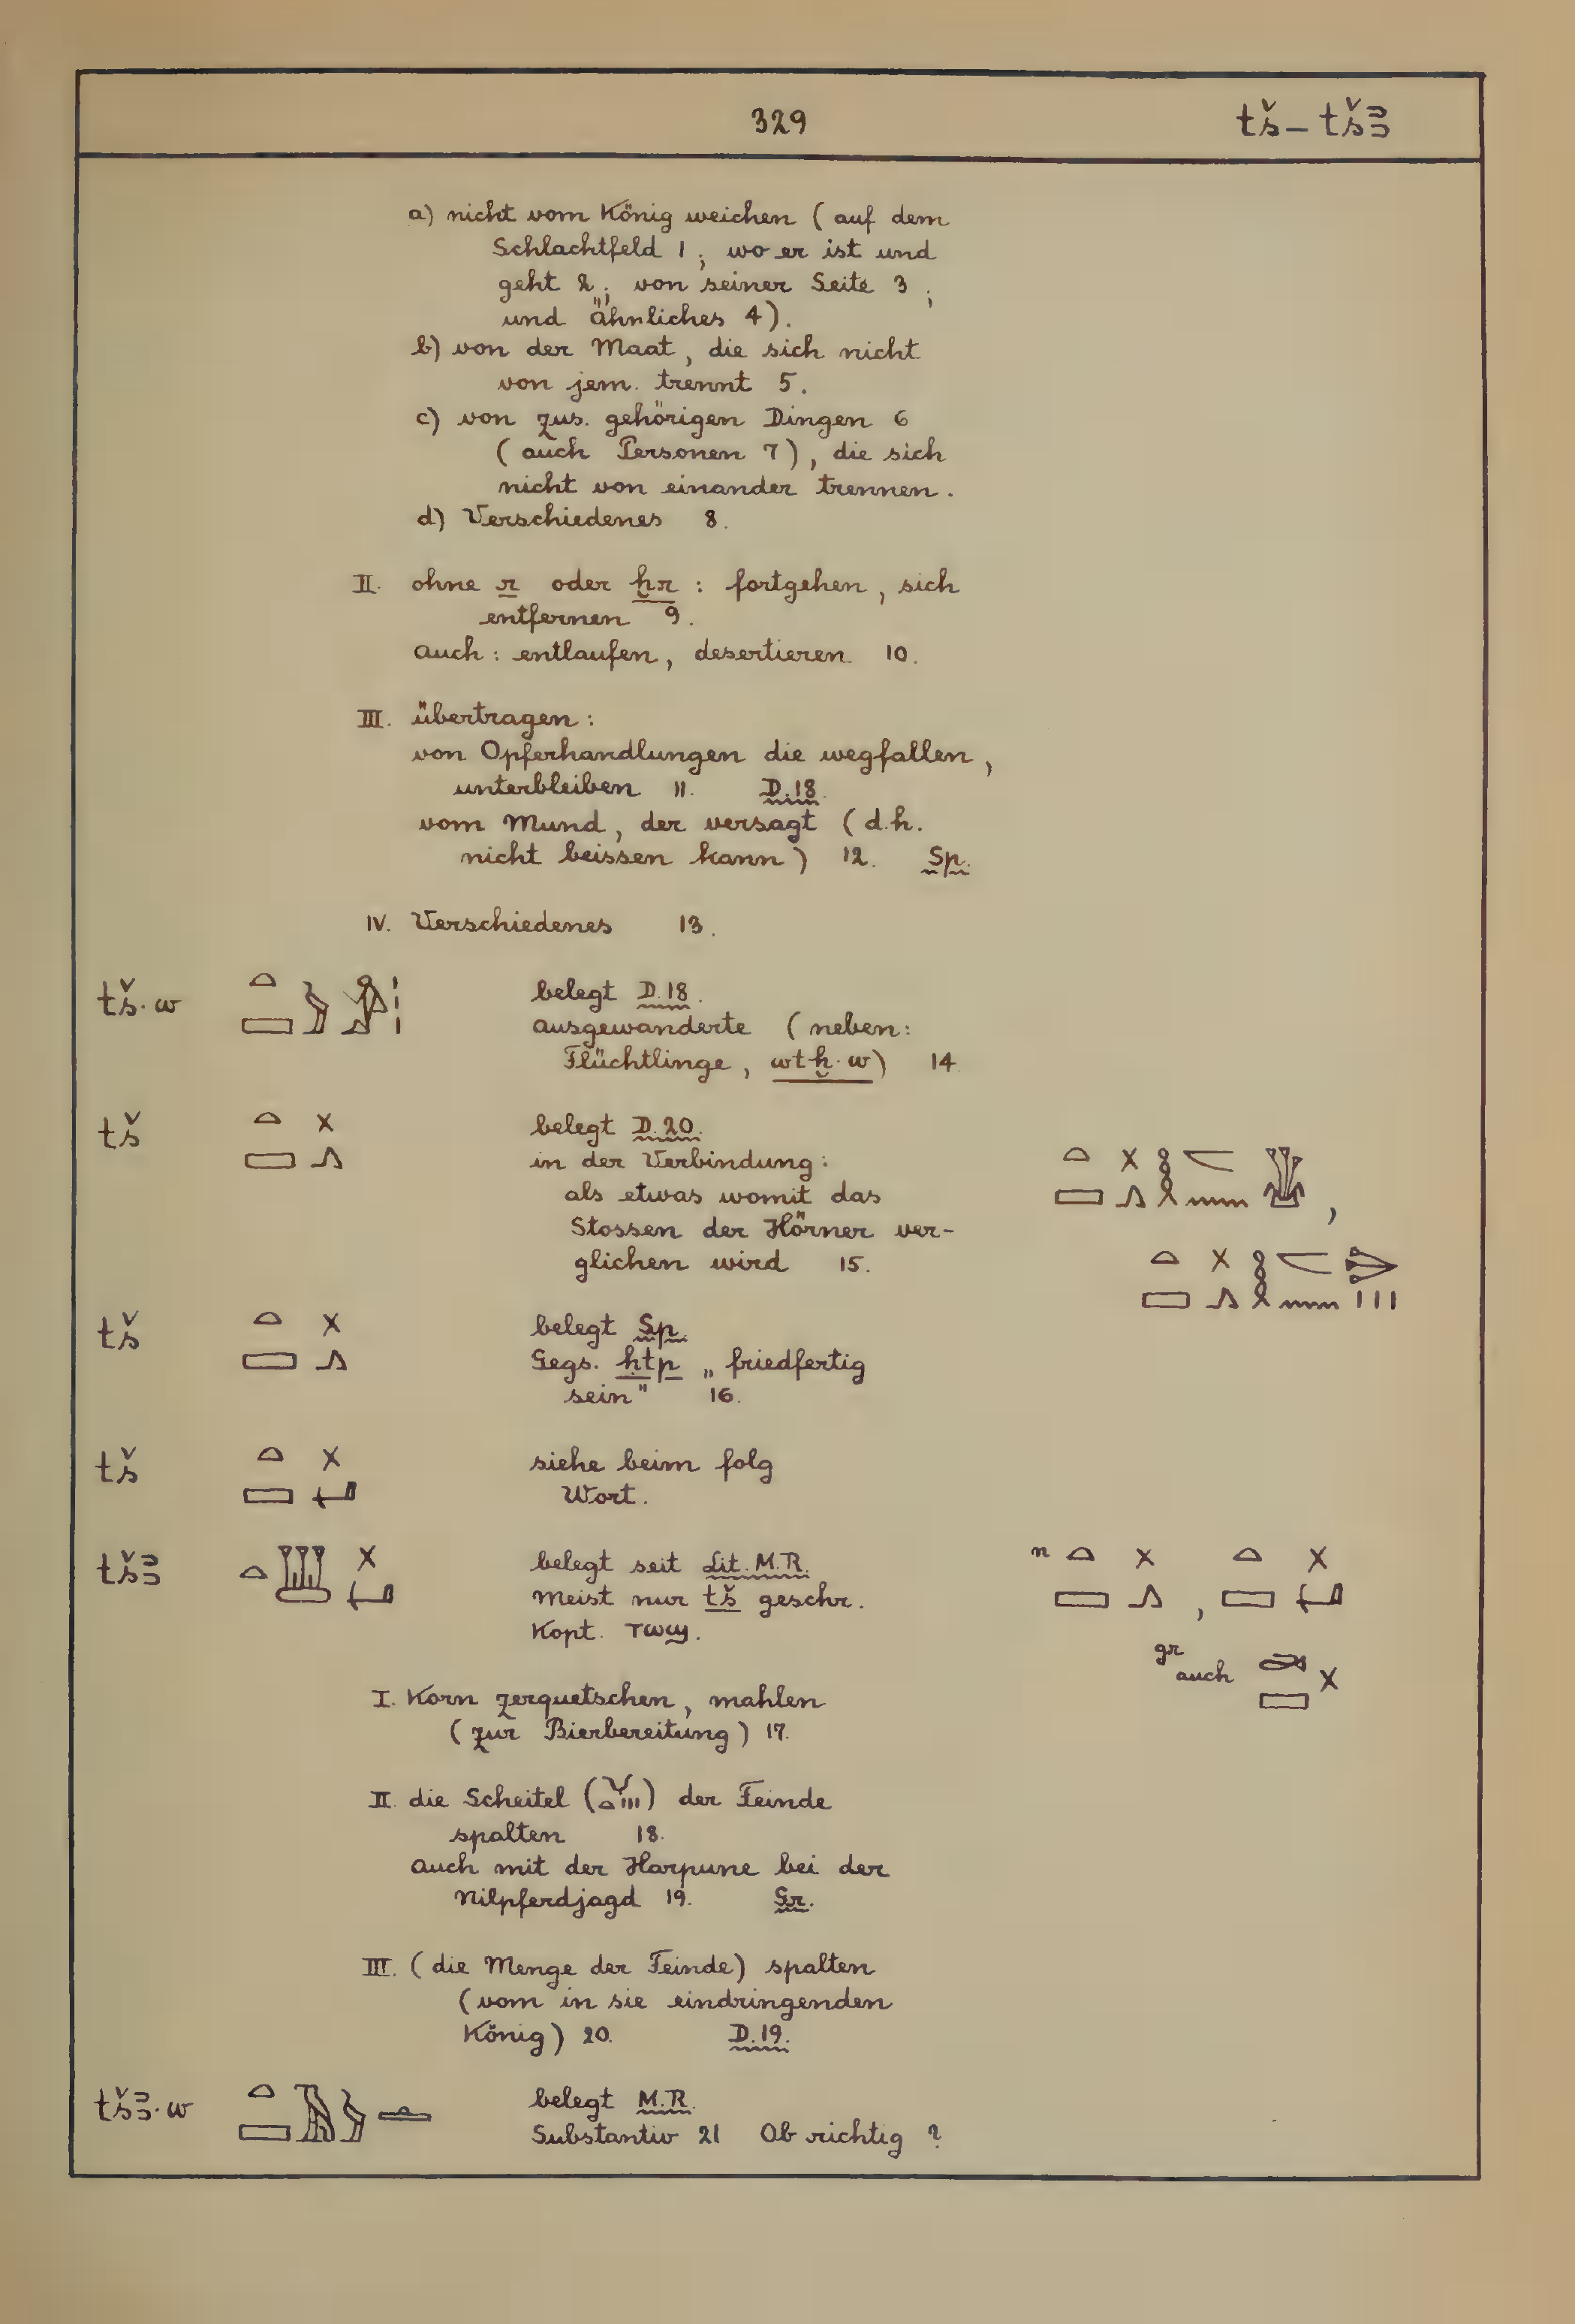 329 tš – tšꜣ
a) nicht vom König weichen ( auf dem
Schlachtfeld 1 ; wo er ist und
geht 2 ; von seiner Seite 3 ;
und ähnliches 4 ).
b) von der Maat , die sich nicht
von jem. trennt 5 .
c) von zus. gehörigen Dingen 6
( auch Personen 7 ) , die sich
nicht von einander trennen .
d) Verschiedenes 8 .
II. ohne r oder ḫr : fortgehen , sich
entfernen 9 .
auch : entlaufen , desertieren 10 .
III. übertragen :
von Opferhandlungen die wegfallen ,
unterbleiben 11. D.18.
vom Mund , der versagt ( d.h.
nicht beissen kann ) 12. Sp.
IV. Verschiedenes 13 .
tš·w belegt D.18.
ausgewanderte ( neben :
Flüchtlinge , wtḫ·w ) 14
tš belegt D.20.
in der Verbindung :
als etwas womit das
Stossen der Hörner ver-
glichen wird 15.
tš belegt Sp.
Gegs. ḥtp „ friedfertig
sein " 16.
tš siehe beim folg
Wort .
tšꜣ belegt seit Lit. M.R.
Meist nur tš geschr.
Kopt. ⲧⲱϣ .
n
gr auch
I. Korn zerquetschen , mahlen
( zur Bierbereitung ) 17.
II. die Scheitel ( ) der Feinde
spalten 18.
auch mit der Harpune bei der
Nilpferdjagd 19. Gr.
III. ( die Menge der Feinde ) spalten
( vom in sie eindringenden
König ) 20. D.19.
tšꜣ·w belegt M.R.
Substantiv 21 Ob richtig ?